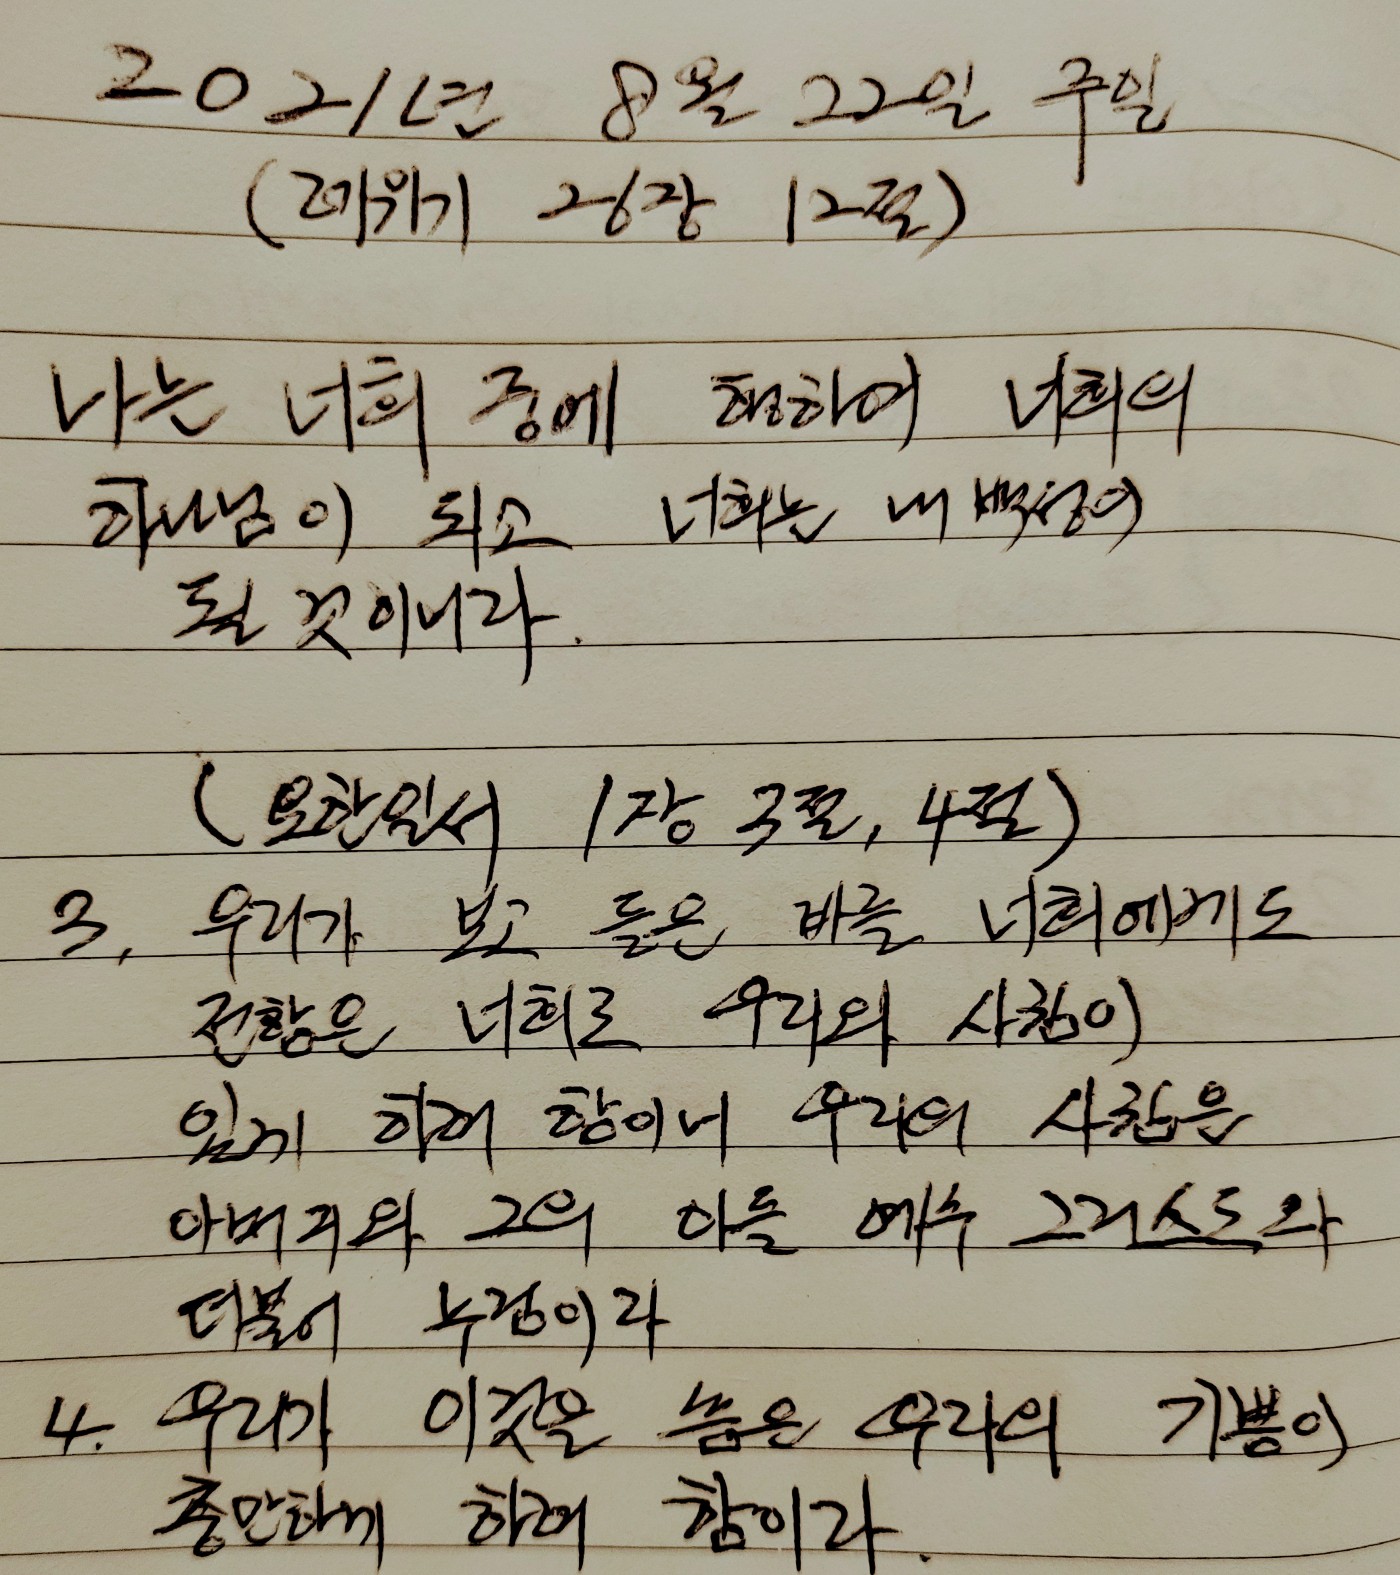 2021년 8월 22일 주일
(레위기 26장 12절)
나는 너희 중에 행하여 너희의
하나님이 되고 너희는 내 백성이
될 것이니라.
(요한일서 1장 3절, 4절)
3, 우리가 보고 들은 바를 너희에게도
전함은 너희로 우리와 사귐이
있게 하려 함이니 우리의 사귐은
아버지와 그의 아들 예수 그리스도와
더불어 누림이라
4. 우리가 이것을 씀은 우리의 기쁨이
충만하게 하려 함이라.